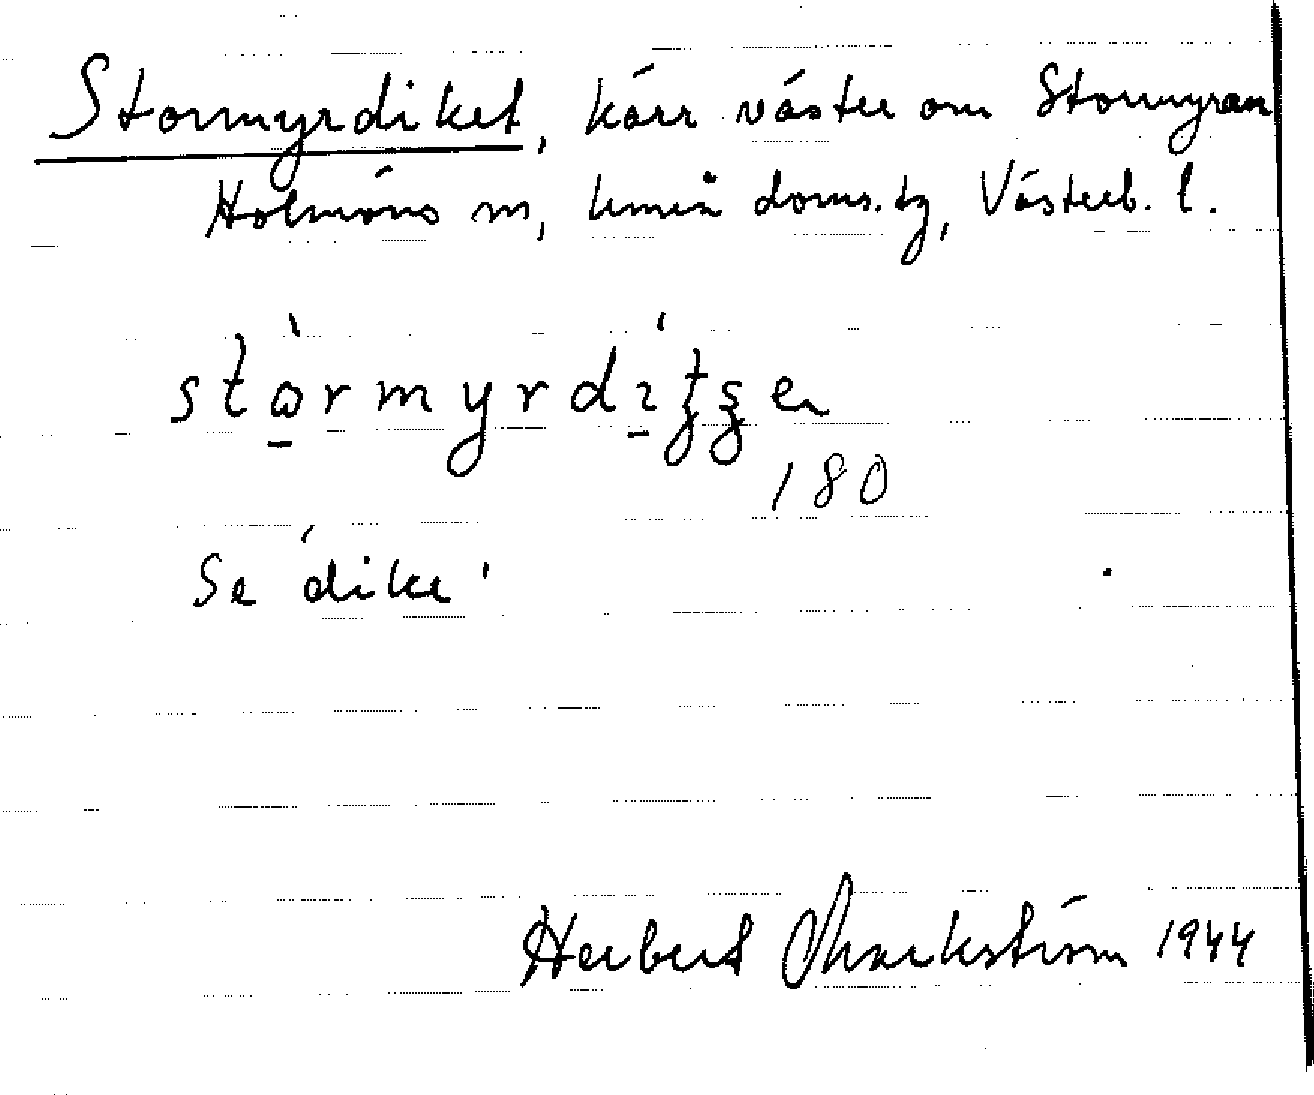 Stormyrdiket, kärr väster om Stormyran
Holmöns sn, Umeå doms. tg, Västerb. l.
stòrmyrdítʂen
180
Se 'dike'
Herbert Markström 1944